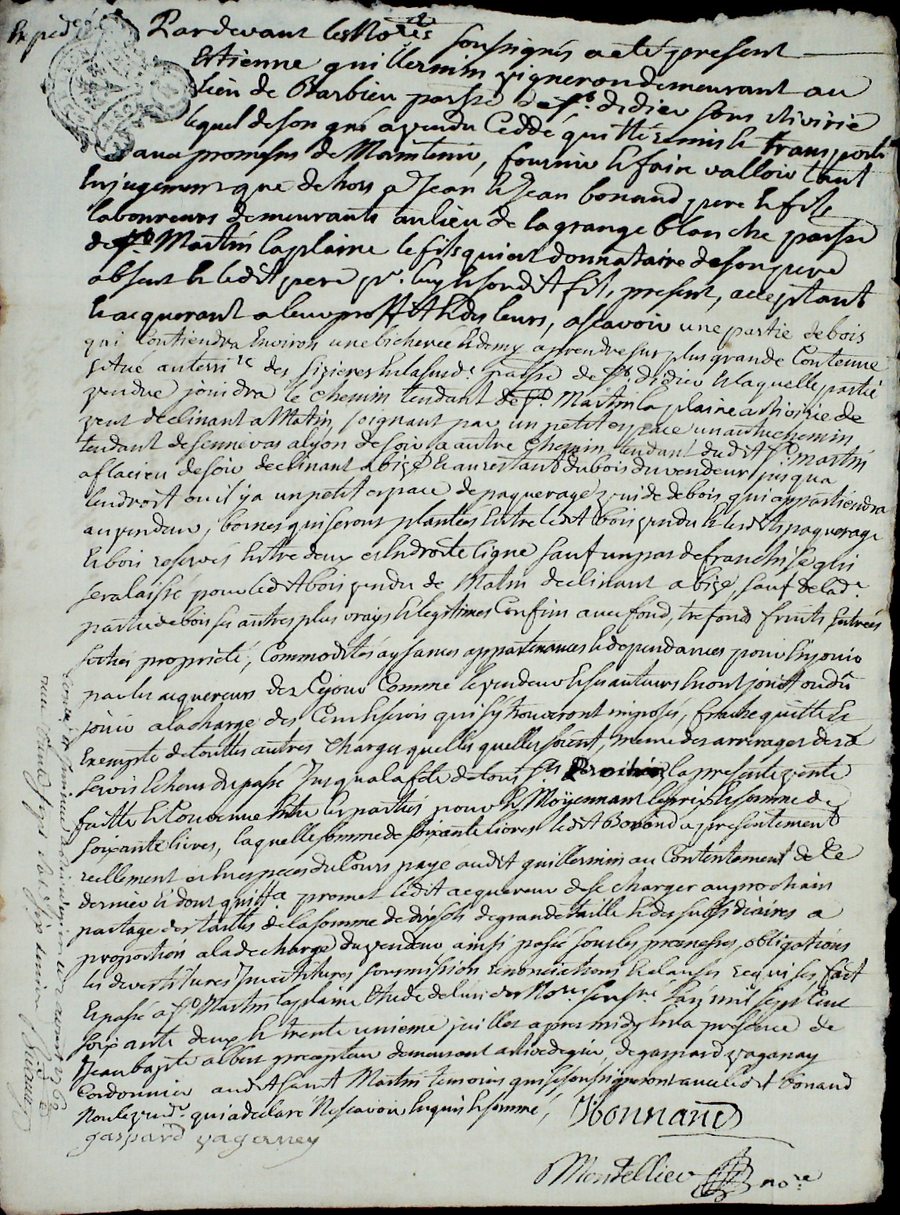 Expédiée
Pardevant les No.res soussignés a eté present
Estienne guillermin vigneron demeurant au
lieu de Barbieu parsse de s.t didier sous Riverie
lequel de son gré a vendu Ceddé quitté remis et transporté
avec promesses de Maintenir, fournir et faire valloir tant
En jugement que dehors a Jean et Jean bonand pere et fils
laboureurs demeurants au lieu de la grange blanche parsse
de s.t Martin laplaine le fils qui est donnataire de son pere
absent et ledit pere pr. luy et sondit fils, present, acceptant
et acquerant a leur proffit et des leurs, ascavoir une partie de bois
qui Contiendra Environ une bicherée et demy a prendre sur plus grande Contenue
situé au terri.re des et la susd.e parsse de s.t didier Et laquelle partie
vendue joindra le chemin tendant de s.t Martin la plaine a Riverie de
vent declinant a Matin, joignant par un petit espace un autre chemin
tendant de a lyon de soir a autre Chemin tendant dudit s.t Martin
a de soir declinant a bize et au restant du bois du vendeur jusqua
lendroit ou il y a un petit espace de paquerage vuide de bois qui appartiendra
au vendeur, bornes qui seront plantées Entre ledit bois vendu et lesdits paquerage
et bois reservés Entre deux et En droite ligne sauf un pas de franchise qui
sera laissé pour ledit bois vendu de Matin declinant a bize, sauf de lad.e
partie de bois ses autres plus vrais et legitimes Confins avec fond, trefond fruits, Entrées
sorties proprieté, Commodités aysances appartenances et dependances pour En jouir
par les acquereurs des Cejour Comme le vendeur et ses auteurs En ont jouit ou dû
jouir a la charge des Cens et servis qui s'y trouveront imposés, franche quitte Et
Exempte de touttes autres Charges quelles quelles soient, meme des arrerages desd
servis et Cens du passé Jusqua la fête de tous s.ts la presente vente
faitte et Convenue Entre les parties pour et Moyennant le prix et somme de
soixante livres, laquelle somme de soixante livres ledit Bonand a presentement
reellement et En especes du Cours payé audit guillermin au Contentement de Ce
dernier et dont quitta promet ledit acquereur de se charger au prochain
partage des tailles de la somme de dix sols de grande taille et des subsidiaires a
proportion a la decharge du vendeur ainsi passé sous les promesses, obligations
les devertitures Investitures soumission renonciations et clauses requises, fait
et passé a s.t Martin laplaine Etude de l'un des No.res soussé lan mil sept Cent
soixante deux et le trente unieme juillet apres midy En la presence de
Jean bapte albert precepteur demeurant a Rivedegier, de gaspard vaganay
Cordonnier audit saint Martin temoins qui se soussigneront avec ledit bonand
Non le vend.r qui a declaré Ne scavoir Enquis et sommé,
JBonnand
gaspard vaganey
Montellier no.re